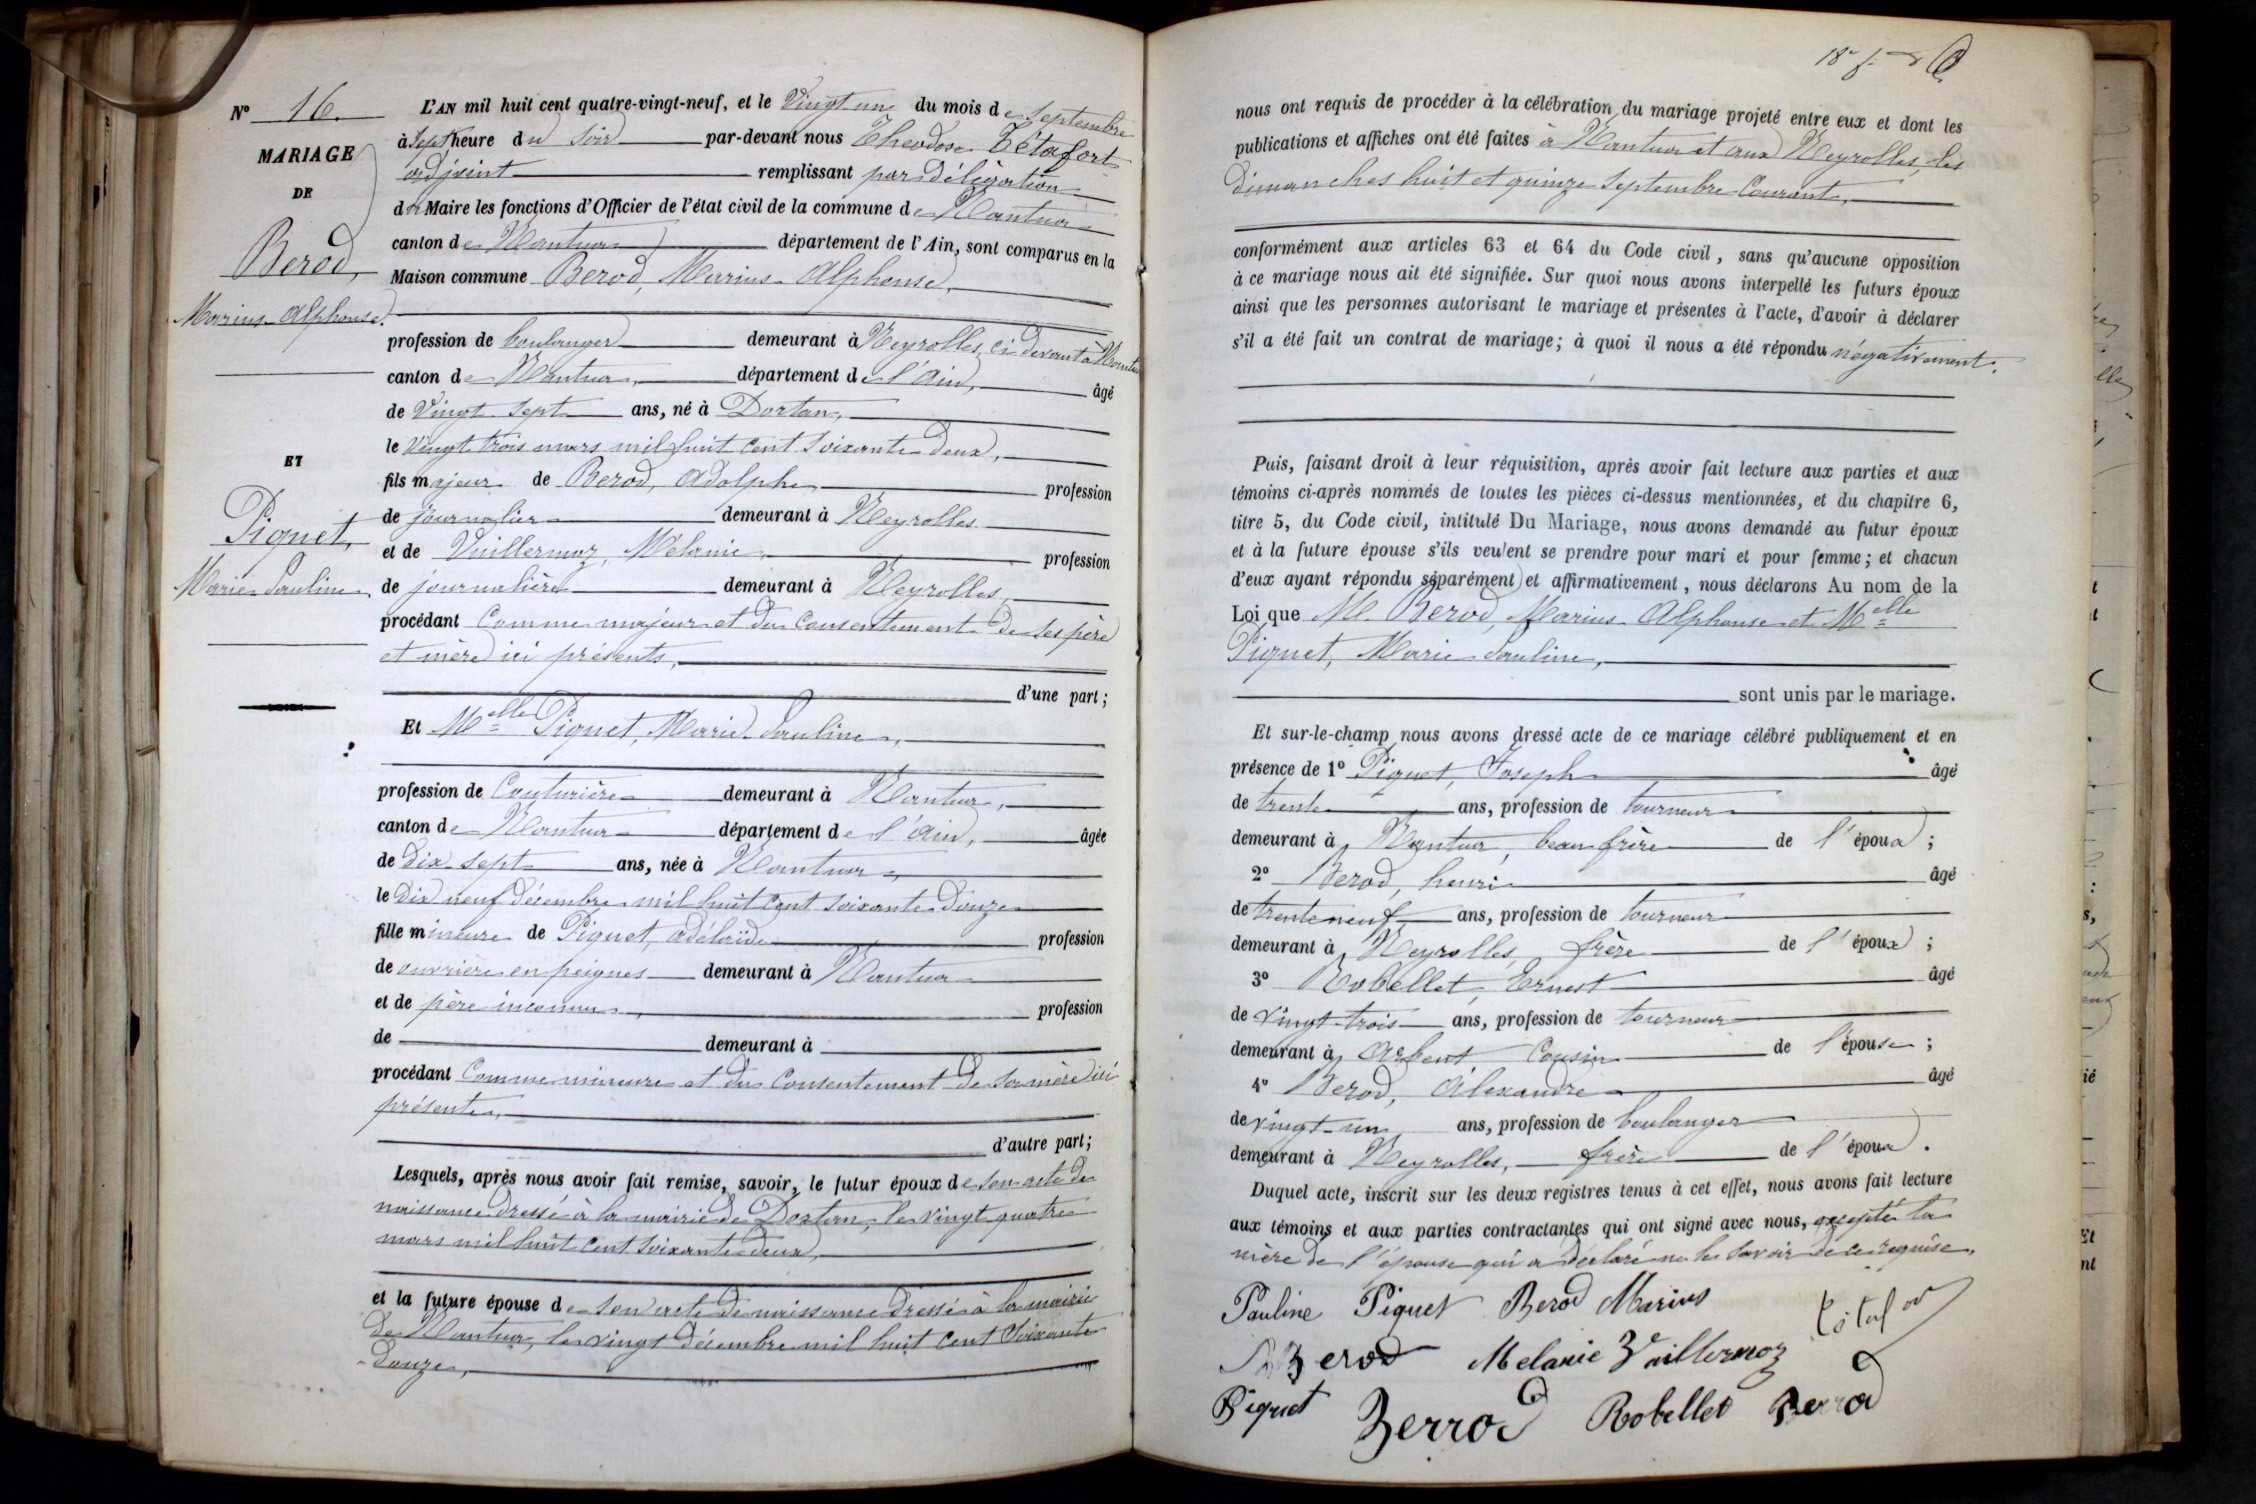 N° 16.
MARIAGE
DE
Berod,
Marius Alphonse.
ET
Piquet,
Marie Pauline
L'AN mil huit cent quatre-vingt-neuf, et le Vingt un du mois de Septembre
à Sept heure du Soir par-devant nous Théodose Tétafort
adjoint remplissant par délégation
du Maire les fonctions d'Officier de l'état civil de la commune de Nantua
canton de Nantua département de l'Ain, sont comparus en la
Maison commune Berod, Marius Alphonse,
profession de boulanger demeurant à Neyrolles, ci devant à Nantua
canton de Nantua, département de l'Ain, âgé
de Vingt Sept ans, né à Dortan,
le Vingt trois mars mil huit cent Soixante deux,
fils majeur de Berod, Adolphe profession
de journalier demeurant à Neyrolles
et de Vuillermoz, Mélanie, profession
de journalière demeurant à Neyrolles,
procédant Comme majeur et du Consentement de Ses père
et mère ici présents,
d'une part;
Et Melle Piquet, Marie Pauline,
profession de Couturière demeurant à Nantua,
canton de Nantua département de l'Ain, âgée
de Dix Sept ans, née à Nantua,
le Dix neuf décembre mil huit Cent Soixante Douze
fille mineure de Piquet, Adélaïde profession
de ouvrière en peignes demeurant à Nantua
et de père inconnu, profession
de demeurant à
procédant Comme mineure et du Consentement de Sa mère ici
présente,
d'autre part;
Lesquels, après nous avoir fait remise, savoir, le futur époux de Son acte de
naissance dressé à la mairie de Dortan, le vingt quatre
mars mil huit Cent Soixante deux,
et la future épouse de Son acte de naissance dressé à la mairie
de Nantua, le vingt décembre mil huit Cent Soixante
Douze,
nous ont requis de procéder à la célébration du mariage projeté entre eux et dont les
publications et affiches ont été faites à Nantua et aux Neyrolles, les
dimanches huit et quinze Septembre Courant,
conformément aux articles 63 et 64 du Code civil, sans qu'aucune opposition
à ce mariage nous ait été signifiée. Sur quoi nous avons interpellé les futurs époux
ainsi que les personnes autorisant le mariage et présentes à l'acte, d'avoir à déclarer
s'il a été fait un contrat de mariage; à quoi il nous a été répondu négativement.
Puis, faisant droit à leur réquisition, après avoir fait lecture aux parties et aux
témoins ci-après nommés de toutes les pièces ci-dessus mentionnées, et du chapitre 6,
titre 5, du Code civil, intitulé Du Mariage, nous avons demandé au futur époux
et à la future épouse s'ils veulent se prendre pour mari et pour femme; et chacun
d'eux ayant répondu séparément et affirmativement, nous déclarons Au nom de la
Loi que M. Berod, Marius Alphonse et Melle
Piquet, Marie Pauline,
sont unis par le mariage.
Et sur-le-champ nous avons dressé acte de ce mariage célébré publiquement et en
présence de 1° Piquet, Joseph âgé
de trente ans, profession de tourneur
demeurant à Nantua, beau frère de l'époux;
2° Berod, henri âgé
de trente neuf ans, profession de tourneur
demeurant à Neyrolles, frère de l'époux;
3° Robellet, Ernest âgé
de vingt-trois ans, profession de tourneur
demeurant à Arbent Cousin de l'épouse;
4° Berod, Alexandre âgé
de vingt-un ans, profession de boulanger
demeurant à Neyrolles, frère de l'époux.
Duquel acte, inscrit sur les deux registres tenus à cet effet, nous avons fait lecture
aux témoins et aux parties contractantes qui ont signé avec nous, excepté la
mère de l'épouse qui a déclaré ne le Savoir de ce requise.
Pauline Piquet Berod Marius
Berod Melanie Vuillermoz
Piquet Berrod Robellet Berrod